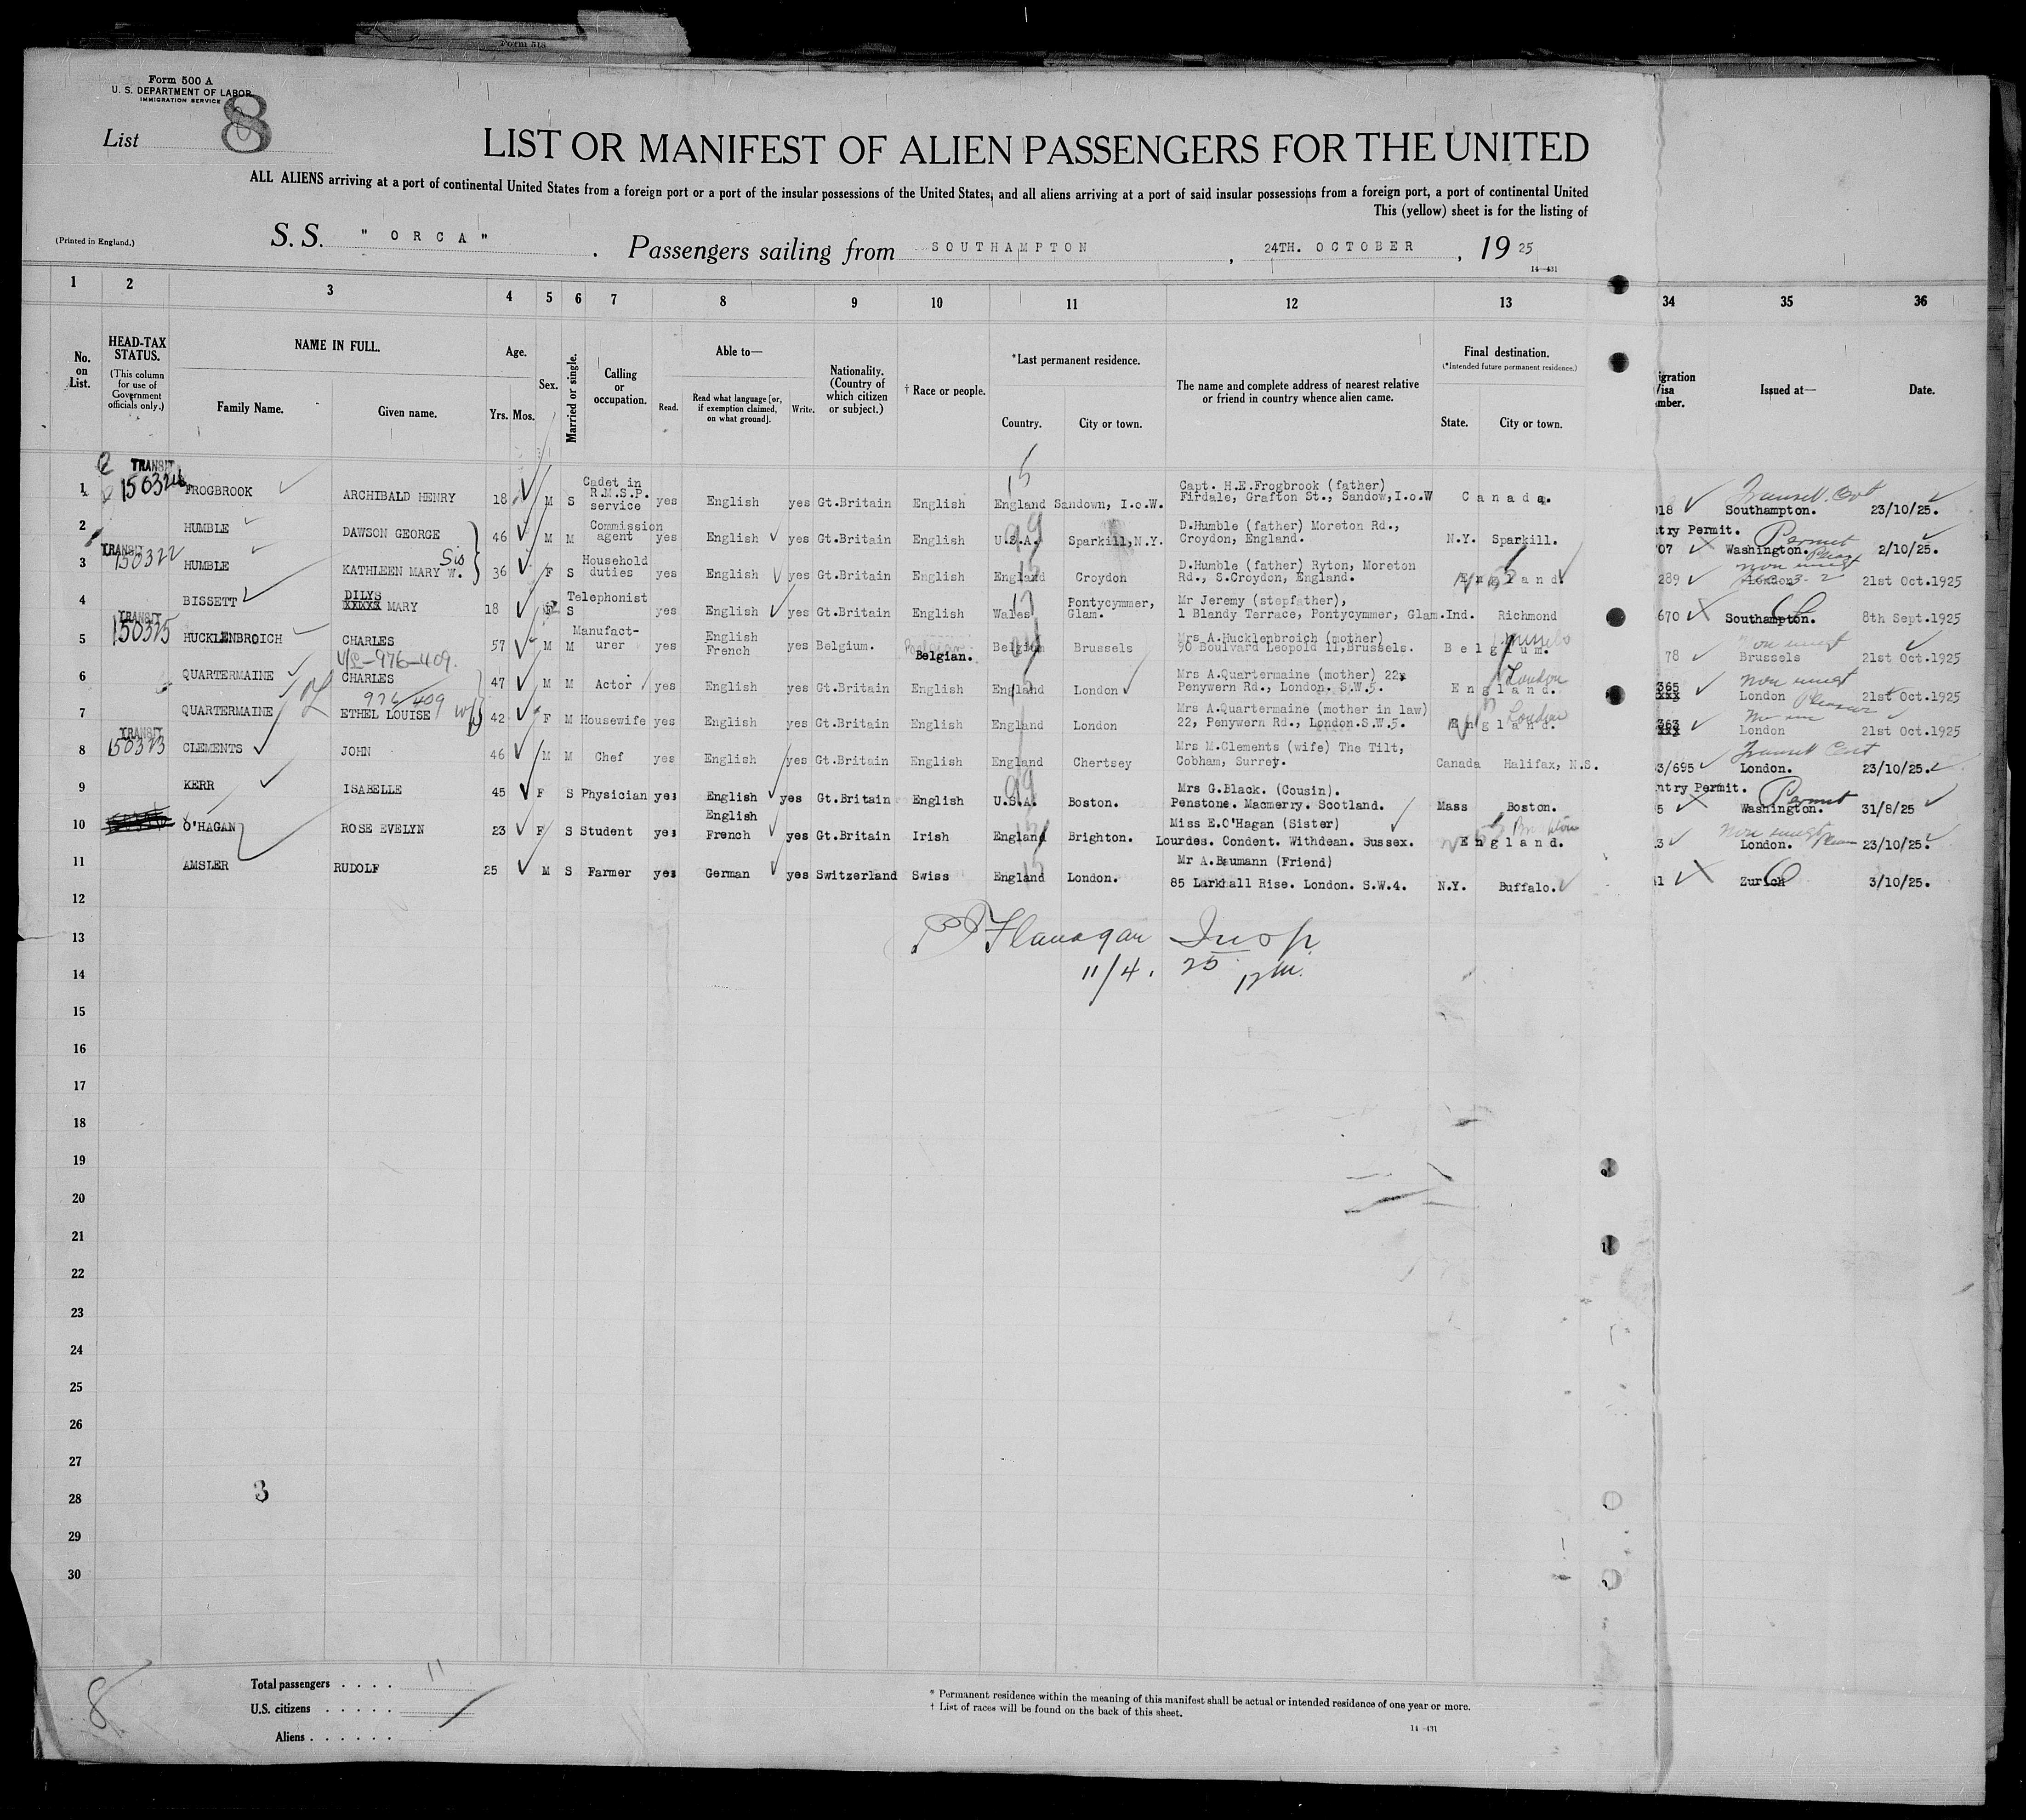 Form 518
Form 500 A
U. S. DEPARTMENT OF LABOR
IMMIGRATION SERVICE
List 8
LIST OR MANIFEST OF ALIEN PASSENGERS FOR THE UNITED
ALL ALIENS arriving at a port of continental United States from a foreign port or a port of the insular possessions of the United States, and all aliens arriving at a port of said insular possessions from a foreign port, a port of continental United
This (yellow) sheet is for the listing of
(Printed in England.)
S. S. " O R C A " . Passengers sailing from SOUTHAMPTON , 24TH. OCTOBER , 19 25
14—431
1 2 3 4 5 6 7 8 9 10 11 12 13 34 35 36
No. on List.
HEAD-TAX STATUS. (This column for use of Government officials only.)
NAME IN FULL.
Family Name. Given name.
Age. Yrs. Mos.
Sex.
Married or single.
Calling or occupation.
Able to—
Read. Read what language [or, if exemption claimed, on what ground]. Write.
Nationality. (Country of which citizen or subject.)
† Race or people.
*Last permanent residence.
Country. City or town.
The name and complete address of nearest relative or friend in country whence alien came.
Final destination.
(*Intended future permanent residence.)
State. City or town.
igration Visa mber.
Issued at—
Date.
1 TRANSIT 150324 FROGBROOK ARCHIBALD HENRY 18 M S Cadet in R.M.S.P. service yes English yes Gt.Britain English England Sandown, I.o.W. Capt. H.E.Frogbrook (father) Firdale, Grafton St., Sandow,I.o.W Canada. 018 Transit Cert Southampton. 23/10/25.
2 HUMBLE DAWSON GEORGE 46 M M Commission agent yes English yes Gt.Britain English U.S.A. Sparkill,N.Y. D.Humble (father) Moreton Rd., Croydon, England. N.Y. Sparkill. ntry Permit. 707 Permit Washington. 2/10/25.
3 TRANSIT 150322 HUMBLE KATHLEEN MARY W. Sis 36 F S Household duties yes English yes Gt.Britain English England Croydon D.Humble (father) Ryton, Moreton Rd., S.Croydon, England. England 289 London 21st Oct.1925
4 BISSETT DILYS XXXXX MARY 18 F S Telephonist yes English yes Gt.Britain English Wales Pontycymmer, Glam. Mr Jeremy (stepfather), 1 Blandy Terrace, Pontycymmer, Glam. Ind. Richmond 670 Southampton. 8th Sept.1925
5 TRANSIT 150325 HUCKLENBROICH CHARLES 57 M M Manufact-urer yes English French yes Belgium. Belgian. Belgium Brussels Mrs A.Hucklenbroich (mother) 90 Boulvard Leopold 11,Brussels. Belgium. Brussels 78 Brussels 21st Oct.1925
6 QUARTERMAINE CHARLES 976-409. 47 M M Actor yes English yes Gt.Britain English England London Mrs A.Quartermaine (mother) 22, Penywern Rd., London. S.W.5. England. London 365 xxx London 21st Oct.1925
7 QUARTERMAINE ETHEL LOUISE 976/409 42 F M Housewife yes English yes Gt.Britain English England London Mrs A.Quartermaine (mother in law) 22, Penywern Rd., London.S.W.5. England. London 363 xxx London 21st Oct.1925
8 TRANSIT 150323 CLEMENTS JOHN 46 M M Chef yes English yes Gt.Britain English England Chertsey Mrs M.Clements (wife) The Tilt, Cobham, Surrey. Canada Halifax, N.S. 3/695 Transit Cert London. 23/10/25.
9 KERR ISABELLE 45 F S Physician yes English yes Gt.Britain English U.S.A. Boston. Mrs G.Black. (Cousin). Penstone. Macmerry. Scotland. Mass Boston. ntry Permit. 5 Permit Washington. 31/8/25
10 O'HAGAN ROSE EVELYN 23 F S Student yes English French yes Gt.Britain Irish England Brighton. Miss E.O'Hagan (Sister) Lourdes. Condent. Withdean. Sussex. England. Brighton 3 London. 23/10/25.
11 AMSLER RUDOLF 25 M S Farmer yes German yes Switzerland Swiss England London. Mr A.Baumann (Friend) 85 Larkhall Rise. London. S.W.4. N.Y. Buffalo. 41 Zurich 3/10/25.
12
13 Flanagan Insp
14 11/4. 25
15
16
17
18
19
20
21
22
23
24
25
26
27
28 3
29
30
8
Total passengers . . . . 11
U.S. citizens . . . . .
Aliens . . . . . .
* Permanent residence within the meaning of this manifest shall be actual or intended residence of one year or more.
† List of races will be found on the back of this sheet.
14—431